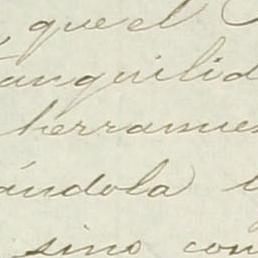 , que el
anquilid
herramien
ándola
sino con